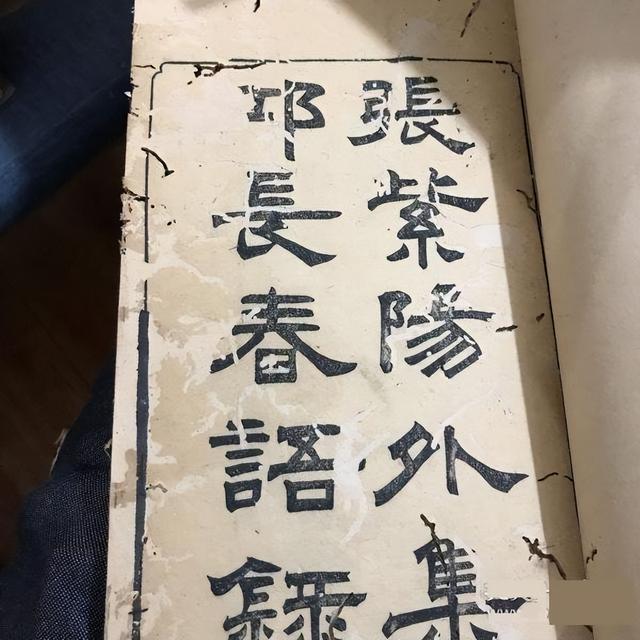 張紫陽外集
邱長春語錄